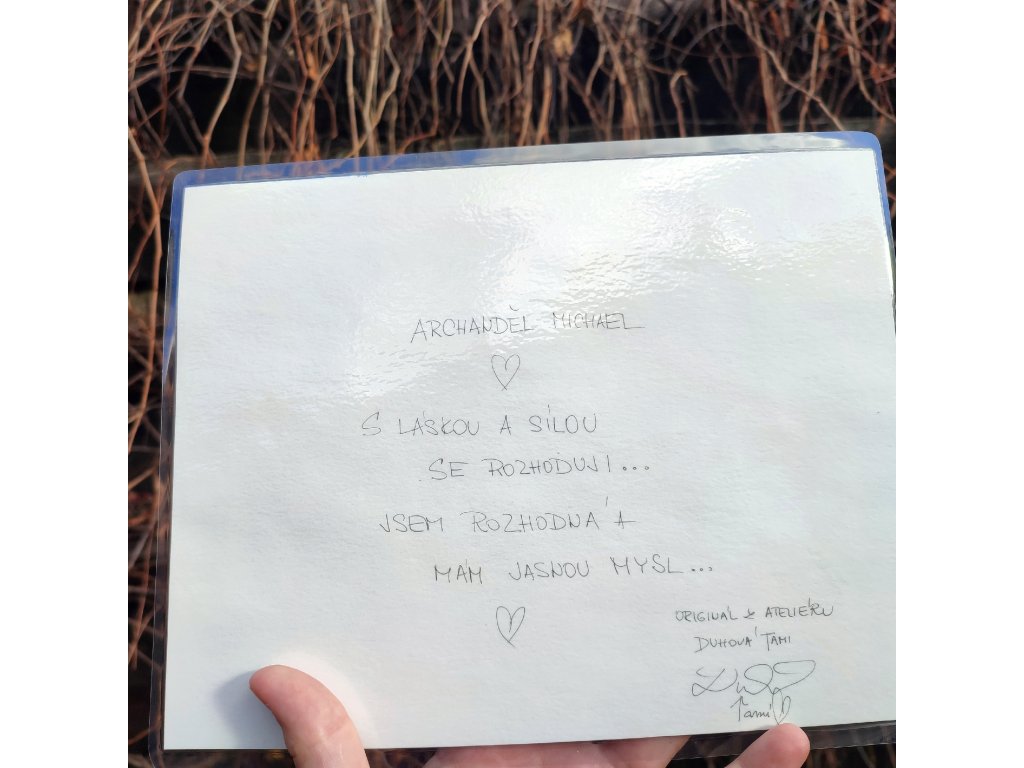 ARCHANDĚL MICHAEL
S LÁSKOU A SÍLOU
SE ROZHODUJI...
JSEM ROZHODNÁ A
MÁM JASNOU MYSL...
ORIGINÁL Z ATELIÉRU
DUHOVÁ TAMI
Tami